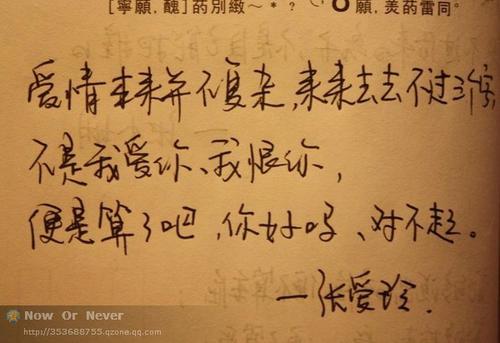 [寧願,醜]菂別緻～*?
願,羨菂雷同。
爱情本来并不复杂,来来去去不过三字
不是我爱你、我恨你,
便是算了吧,你好吗、对不起。
一张爱玲.
Now Or Never
http://353688755.qzone.qq.com